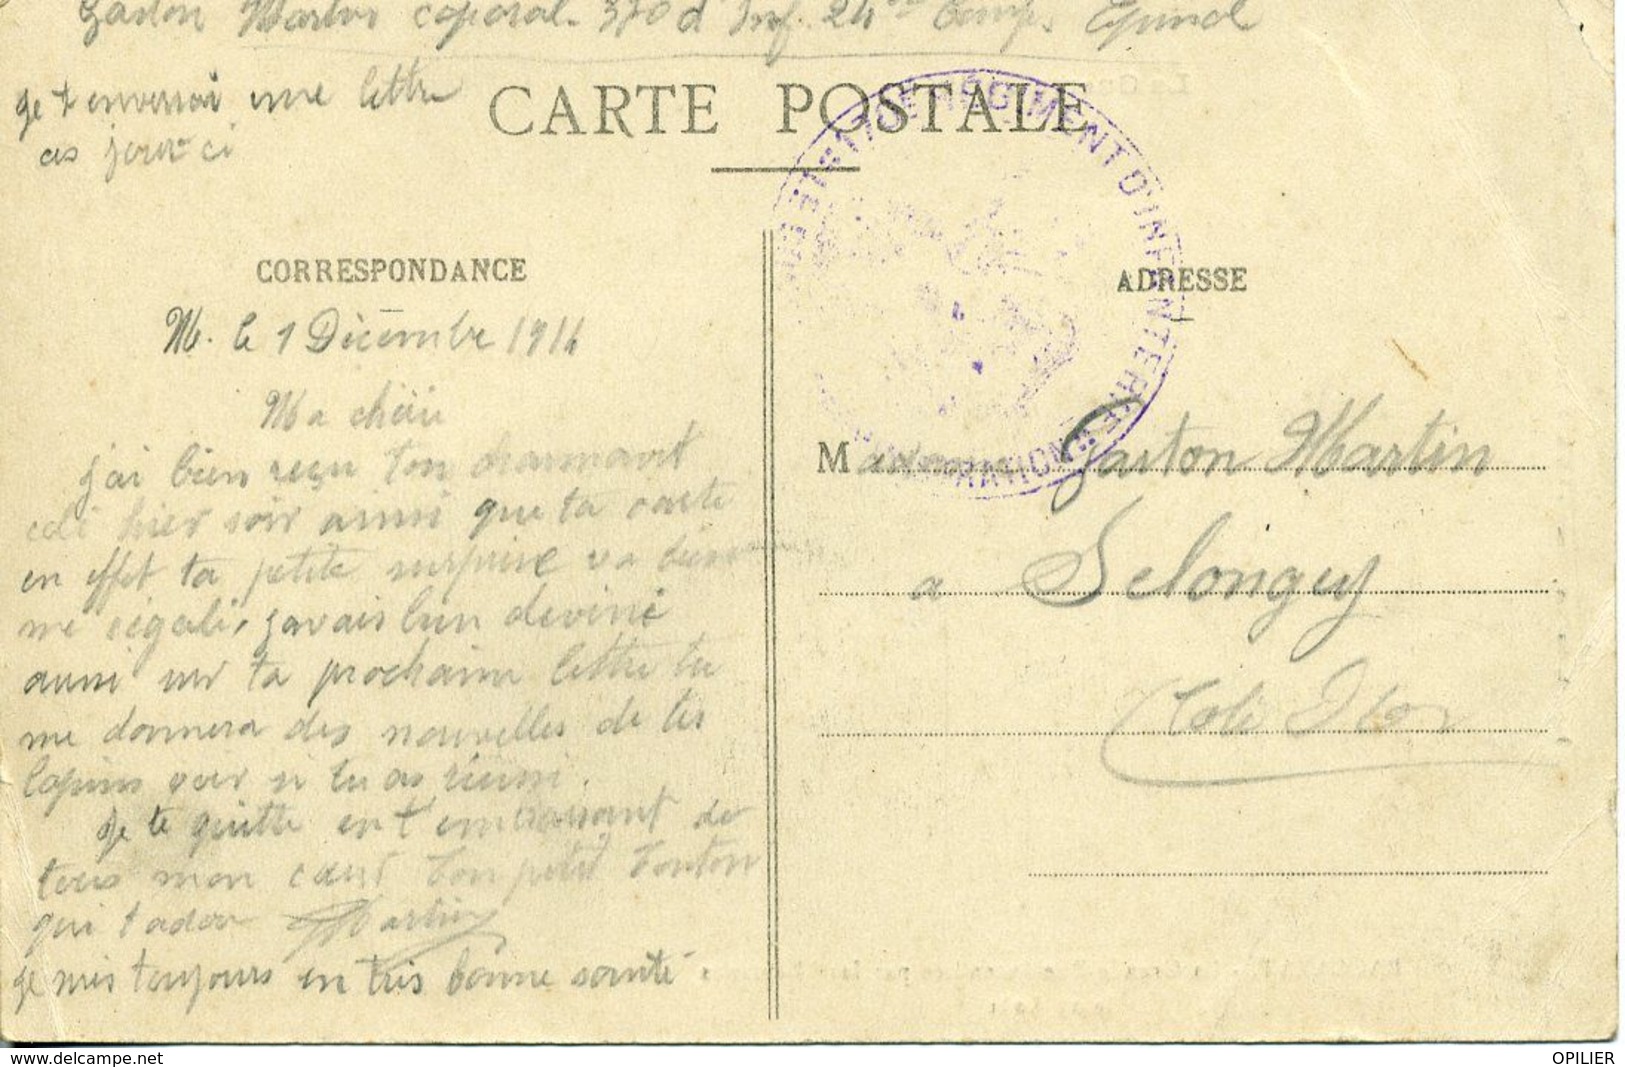 Gaston Martin caporal. 370 d' Inf. 24me Comp. Epinal
je t enverrai une lettre
ces jour ci
CARTE POSTALE
171e REGIMENT D'INFANTERIE
CORRESPONDANCE
ADRESSE
M. le 1 Décembre 1914
Ma chérie
j'ai bien reçu ton charmant
coli hier soir ainsi que ta carte
en effet ta petite surprise va bien
me régaler, javais bien deviné
aussi sur ta prochaine lettre tu
me donnera des nouvelles de tes
lapins voir si tu as réussi.
Je te quitte en t embrassant de
tous mon cœur ton petit Tonton
qui t adore GMartin
je suis toujours en très bonne santé.
Madame Gaston Martin
a Selongey
Cote D'or
delcampe.net
OPILIER